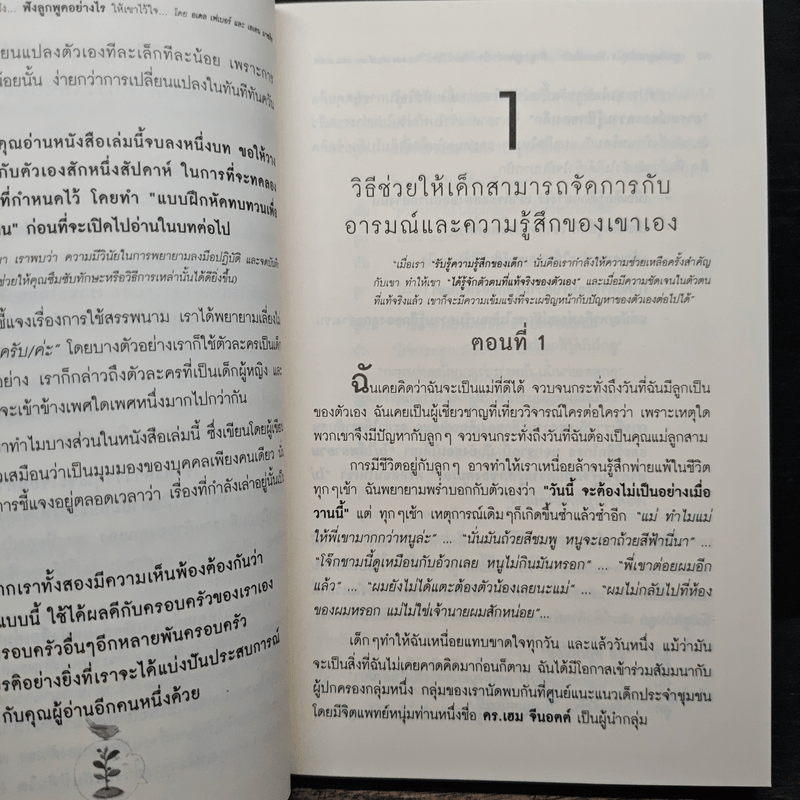 ฟังลูกพูดอย่างไร ให้เขาไว้ใจ... โดย อเดล เฟเบอร์ และ
ยนแปลงตัวเองทีละเล็กทีละน้อย เพราะการ
น้อยนั้น ง่ายกว่าการเปลี่ยนแปลงในทันทีทันควัน
คุณอ่านหนังสือเล่มนี้จบลงหนึ่งบท ขอให้วาง
กับตัวเองสักหนึ่งสัปดาห์ ในการที่จะทดลอง
ที่กำหนดไว้ โดยทำ "แบบฝึกหัดทบทวนเพื่อ
น" ก่อนที่จะเปิดไปอ่านในบทต่อไป
เราพบว่า ความมีวินัยในการพยายามลงมือปฏิบัติ และจดบันทึก
ช่วยให้คุณซึมซับทักษะหรือวิธีการเหล่านั้นได้ดียิ่งขึ้น)
ชี้แจงเรื่องการใช้สรรพนาม เราได้พยายามเลี่ยงไม่
ครับ/ค่ะ" โดยบางตัวอย่างเราก็ใช้ตัวละครเป็นเด็ก
อย่าง เราก็กล่าวถึงตัวละครที่เป็นเด็กผู้หญิง และ
จะเข้าข้างเพศใดเพศหนึ่งมากไปกว่ากัน
ทำไมบางส่วนในหนังสือเล่มนี้ ซึ่งเขียนโดยผู้เขียน
เสมือนว่าเป็นมุมมองของบุคคลเพียงคนเดียว
การชี้แจงอยู่ตลอดเวลาว่า เรื่องที่กำลังเล่าอยู่นั้นเป็น
ากเราทั้งสองมีความเห็นพ้องต้องกันว่า
แบบนี้ ใช้ได้ผลดีกับครอบครัวของเราเอง
รอบครัวอื่นๆอีกหลายพันครอบครัว
รติอย่างยิ่งที่เราจะได้แบ่งปันประสบการณ์
กับคุณผู้อ่านอีกคนหนึ่งด้วย
1
วิธีช่วยให้เด็กสามารถจัดการกับ
อารมณ์และความรู้สึกของเขาเอง
"เมื่อเรา "รับรู้ความรู้สึกของเด็ก" นั่นคือเรากำลังให้ความช่วยเหลือครั้งสำคัญ
กับเขา ทำให้เขา "ได้รู้จักตัวตนที่แท้จริงของตัวเอง" และเมื่อมีความชัดเจนในตัวตน
ที่แท้จริงแล้ว เขาก็จะมีความเข้มแข็งที่จะเผชิญหน้ากับปัญหาของตัวเองต่อไปได้"
ตอนที่ 1
ฉันเคยคิดว่าฉันจะเป็นแม่ที่ดีได้ จวบจนกระทั่งถึงวันที่ฉันมีลูกเป็น
ของตัวเอง ฉันเคยเป็นผู้เชี่ยวชาญที่เที่ยววิจารณ์ใครต่อใครว่า เพราะเหตุใด
พวกเขาจึงมีปัญหากับลูกๆ จวบจนกระทั่งถึงวันที่ฉันต้องเป็นคุณแม่ลูกสาม
การมีชีวิตอยู่กับลูกๆ อาจทำให้เราเหนื่อยล้าจนรู้สึกพ่ายแพ้ในชีวิต
ทุกๆเช้า ฉันพยายามพร่ำบอกกับตัวเองว่า "วันนี้ จะต้องไม่เป็นอย่างเมื่อ
วานนี้" แต่ ทุกๆเช้า เหตุการณ์เดิมๆก็เกิดขึ้นซ้ำแล้วซ้ำอีก "แม่ ทำไมแม่
ให้พี่เขามากกว่าหนูล่ะ" ... "นั่นมันถ้วยสีชมพู หนูจะเอาถ้วยสีฟ้านี่นา" ...
"โจ๊กชามนี้ดูเหมือนกับอ้วกเลย หนูไม่กินมันหรอก" ... "พี่เขาต่อยผมอีก
แล้ว" ... "ผมยังไม่ได้แตะต้องตัวน้องเลยนะแม่" ... "ผมไม่กลับไปที่ห้อง
ของผมหรอก แม่ไม่ใช่เจ้านายผมสักหน่อย"...
เด็กๆทำให้ฉันเหนื่อยแทบขาดใจทุกวัน และแล้ววันหนึ่ง แม้ว่ามัน
จะเป็นสิ่งที่ฉันไม่เคยคาดคิดมาก่อนก็ตาม ฉันได้มีโอกาสเข้าร่วมสัมมนากับ
ผู้ปกครองกลุ่มหนึ่ง กลุ่มของเรานัดพบกันที่ศูนย์แนะแนวเด็กประจำชุมชน
โดยมีจิตแพทย์หนุ่มท่านหนึ่งชื่อ ดร.เฮม จีนอตต์ เป็นผู้นำกลุ่ม